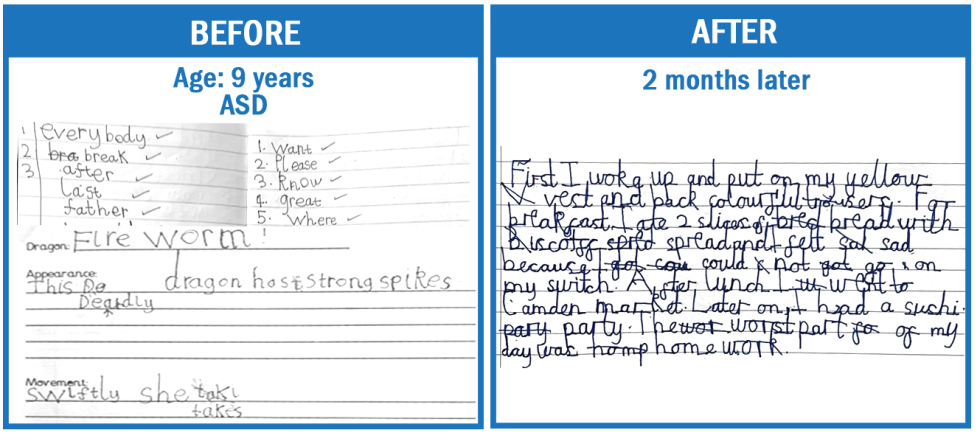 BEFORE
Age: 9 years
ASD
1 everybody ✓
2 bra break ✓
3 after ✓
last ✓
father ✓
1. Want ✓
2. Please ✓
3. Know ✓
4. great ✓
5. Where ✓
Dragon: Fire worm !
Appearance:
This De dragon has strong spikes
Deardly
Movement:
swiftly she taki
takes
AFTER
2 months later
First I woke up and put on my yellow
vest and pack colourful trousers. For
breakcast I ate 2 slices of bred bread with
Biscoff spred spread and I felt sak sad
because I got cou could not got go on
my switch. After lunch I w went to
Camden market. Later on, I had a suchi
pary party. The wor worst part fo of my
day was homp home work.